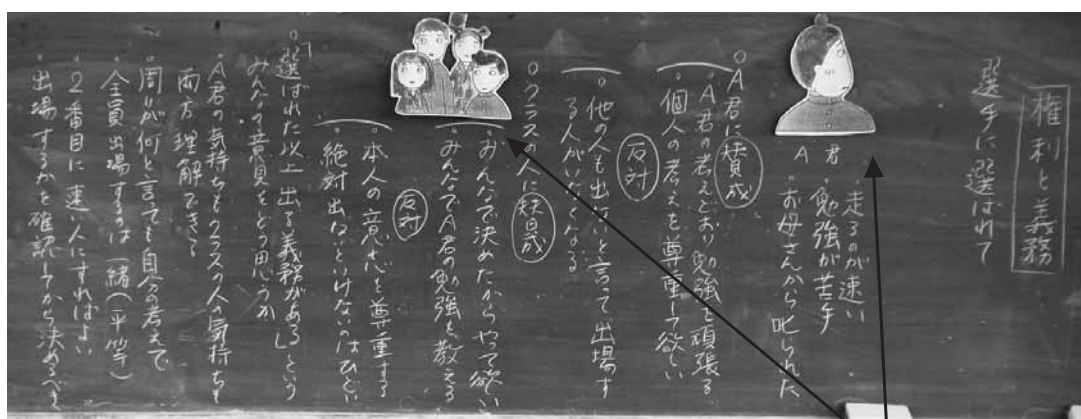 権利と義務
選手に選ばれて
A君
・走るのが速い
・勉強が苦手
・お母さんから叱られた
○A君に賛成
・A君の考えどおり勉強を頑張る
・個人の考えを尊重して欲しい
反対
・他の人も出ないと言って出場す
る人がいなくなる
○クラスの人に賛成
・みんなで決めたからやって欲しい
・みんなでA君の勉強を教える
反対
・本人の意志を尊重する
・絶対出ないといけないのはひどい
「選ばれた以上出る義務がある」という
みんなの意見をどう思うか
・A君の気持ちもクラスの人の気持ちも
両方理解できる
・周りが何と言っても自分の考えで
・全員出場するのは一緒(平等)
・2番目に速い人にすればよい
・出場するかを確認してから決めるべき